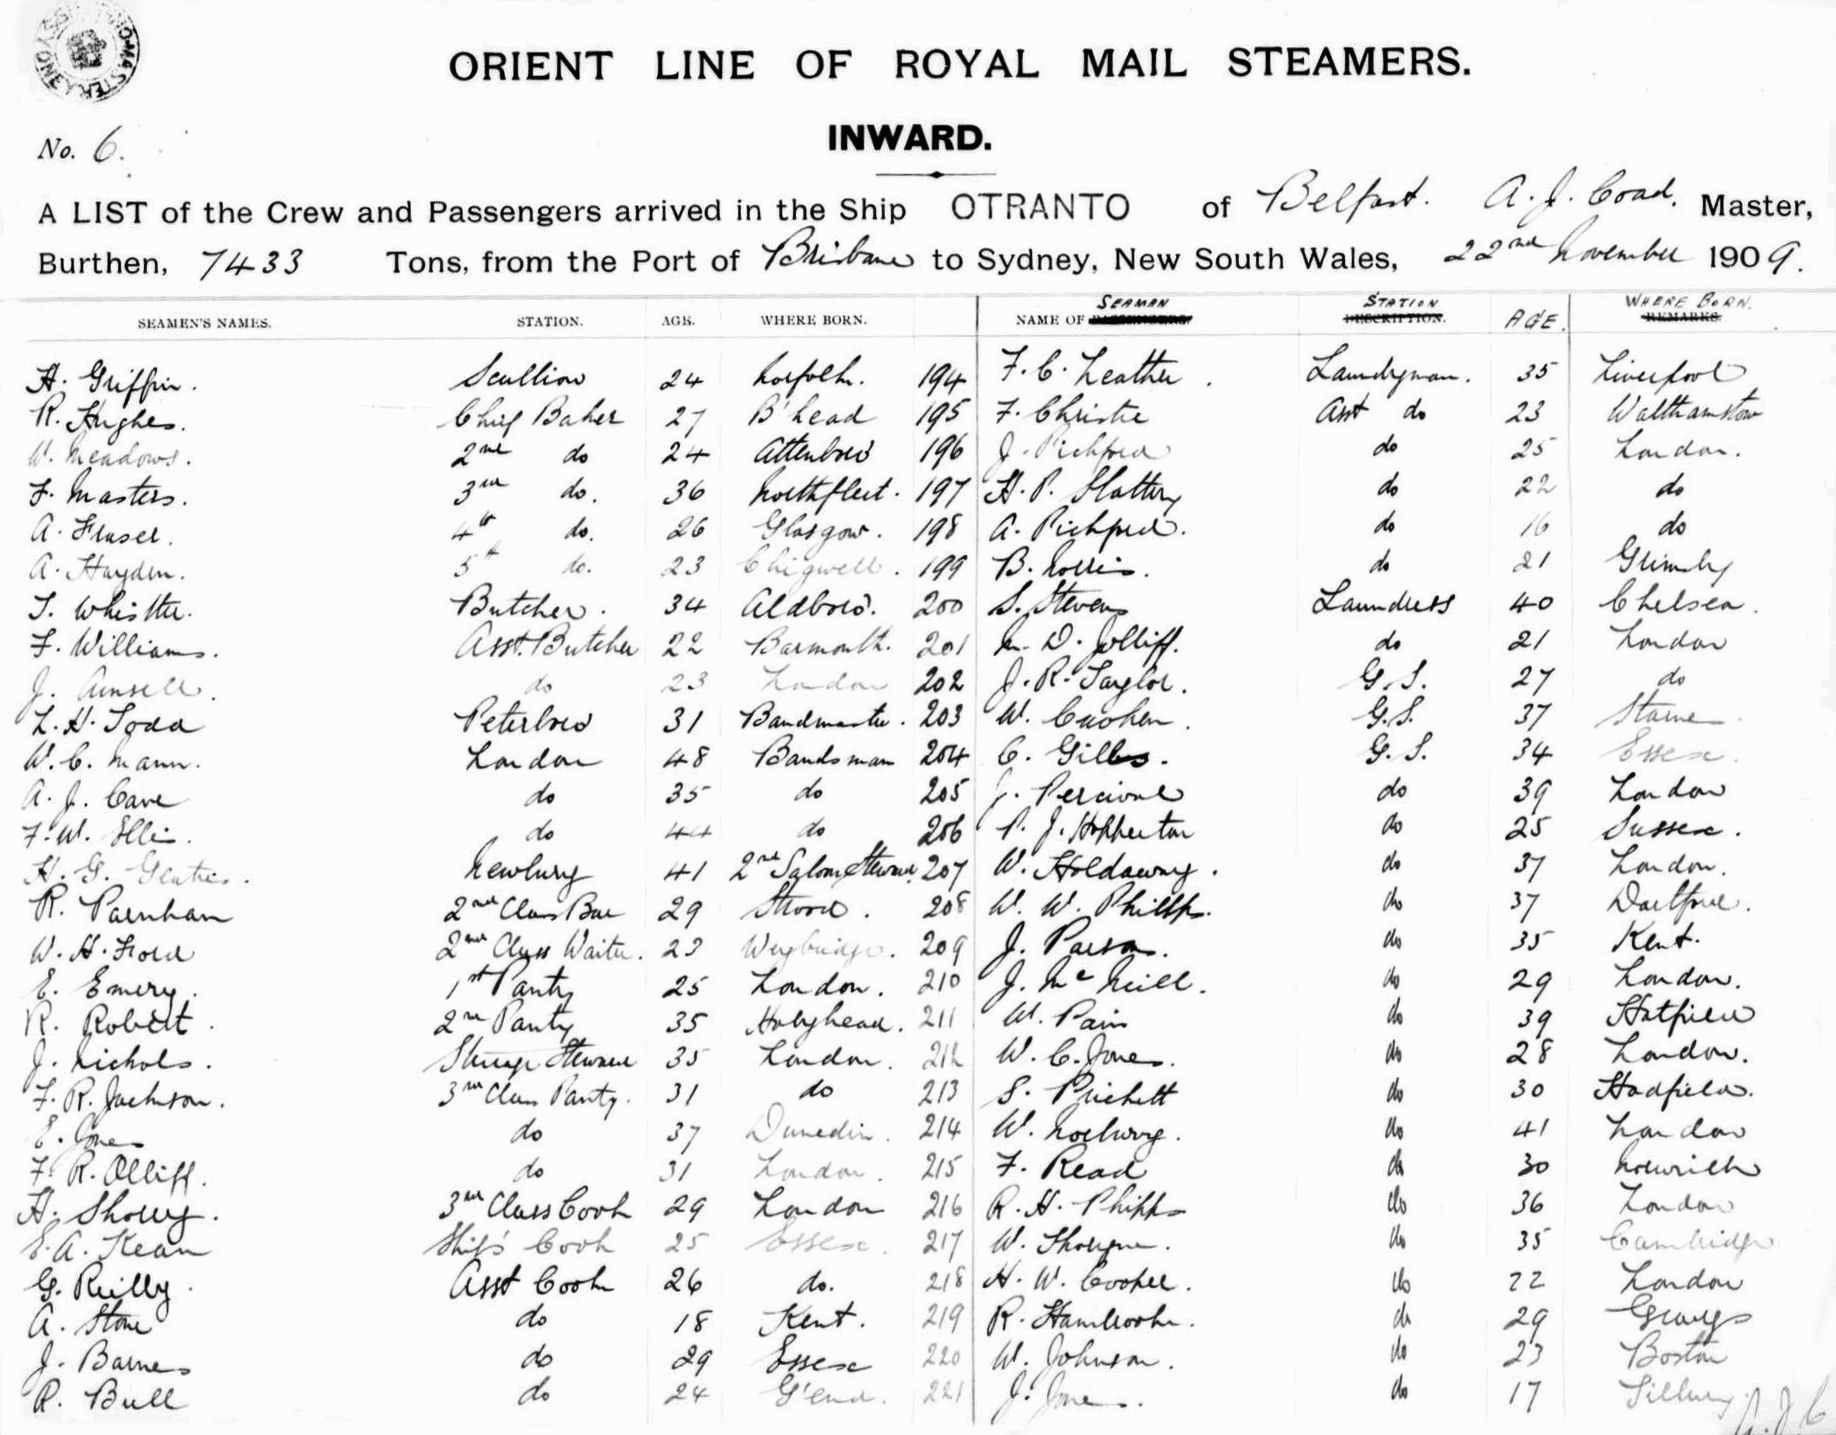 ORIENT LINE OF ROYAL MAIL STEAMERS.
No. 6.
INWARD.
A LIST of the Crew and Passengers arrived in the Ship OTRANTO of Belfast. A. J. Coad. Master,
Burthen, 7433 Tons, from the Port of Brisbane to Sydney, New South Wales, 22nd November 1909.
SEAMEN'S NAMES. STATION. AGE. WHERE BORN. NAME OF SEAMAN STATION AGE. WHERE BORN.
H. Griffin. Scullion 24 Norfolk. 194 F. C. Leather. Laundryman. 35 Liverpool
R. Hughes. Chief Baker 27 B'head 195 F. Christie Asst do 23 Walthamstow
W. Meadows. 2nd do 24 Attenboro 196 J. Pichford do 25 London.
F. Masters. 3rd do. 36 Northfleet. 197 H. P. Slattery do 22 do
A. Fraser. 4th do. 26 Glasgow. 198 A. Pichford. do 16 do
A. Hayden. 5th do. 23 Chigwell. 199 B. Norris. do 21 Grimsby
T. Whistler. Butcher. 34 Aldboro. 200 S. Stevens Laundress 40 Chelsea.
F. Williams. Asst. Butcher 22 Barmouth. 201 M. D. Jolliff. do 21 London
J. Aunsell. do 23 London 202 J. R. Taylor. G.S. 27 do
L. H. Todd Peterboro 31 Bandmaster. 203 W. G.S. 37 Staines
W. C. Mann. London 48 Bandsman 204 C. Gilbs. G.S. 34 Essex.
A. J. Cave do 35 do 205 J. Percival do 39 London
F. W. Ellis. do 44 do 206 P. J. do 25 Sussex.
H. G. Newbury 41 2nd Saloon Steward 207 W. Holdaway. do 37 London.
R. Parnham 2nd Class Bar 29 Strood. 208 W. W. Phillips. do 37 Dartford.
W. H. Ford 2nd Class Waiter. 23 Weybridge. 209 J. Parson. do 35 Kent.
E. Emery. 1st Pantry 25 London. 210 J. McNeill. do 29 London.
R. Robert. 2nd Pantry 35 Holyhead. 211 W. Pain do 39 Hatfield
J. Nichols. Steerage Steward 35 London. 212 W. C. Jones. do 28 London.
F. R. Jackson. 3rd Class Pantry. 31 do 213 S. Prickett do 30 Hadfield.
E. Jones do 37 Dunedin. 214 W. Norbury. do 41 London
F. R. Olliff. do 31 London. 215 F. Read do 30 Norwich
H. Shorey. 3rd Class Cook 29 London 216 R. H. Phipps do 36 London
E. A. Kean Ship's Cook 25 Essex. 217 W. do 35 Cambridge
G. Reilly. Asst Cook 26 do. 218 H. W. Cooper. do 22 London
A. Stone do 18 Kent. 219 R. Hambrooke. do 29 Grays
J. Barnes do 29 Essex 220 W. Johnson. do 23 Boston
R. Bull do 24 G'end. 221 J. Jones. do 17 Tilbury
A. J. C